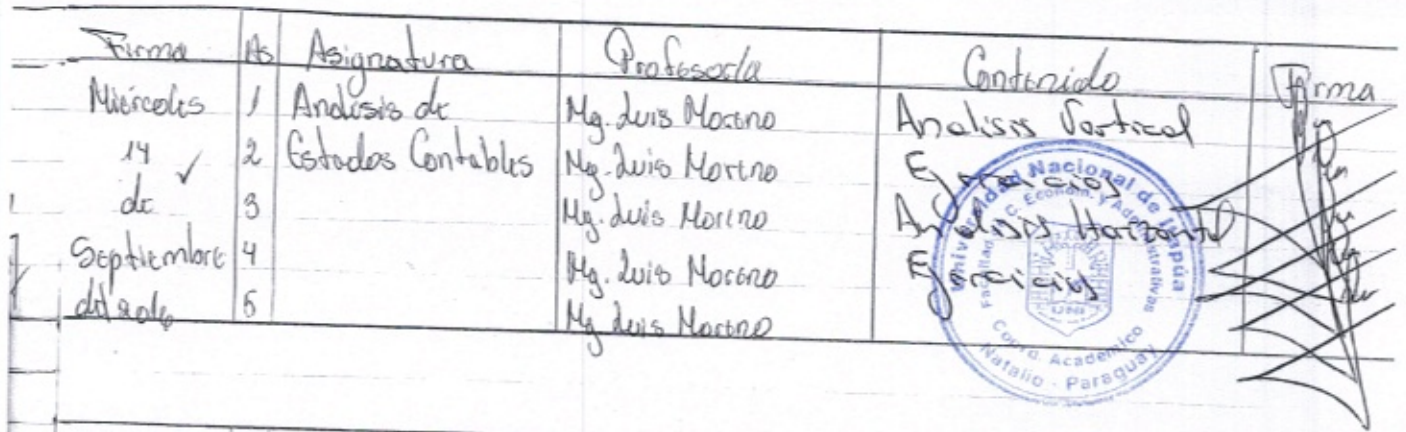 Firma As Asignatura Profesor/a Contenido Firma
Miércoles 1 Análisis de Mg. Luis Moreno Analisis Vertical
14 2 Estados Contables Mg. Luis Moreno Ejercicios
de 3 Mg. Luis Moreno Análisis Horizontal
Septiembre 4 Mg. Luis Moreno Ejercicios
del 2016 5 Mg. Luis Moreno
Universidad Nacional de Itapúa
Facultad C. Econom. y Administrativas
Coord. Académico
Natalio - Paraguay